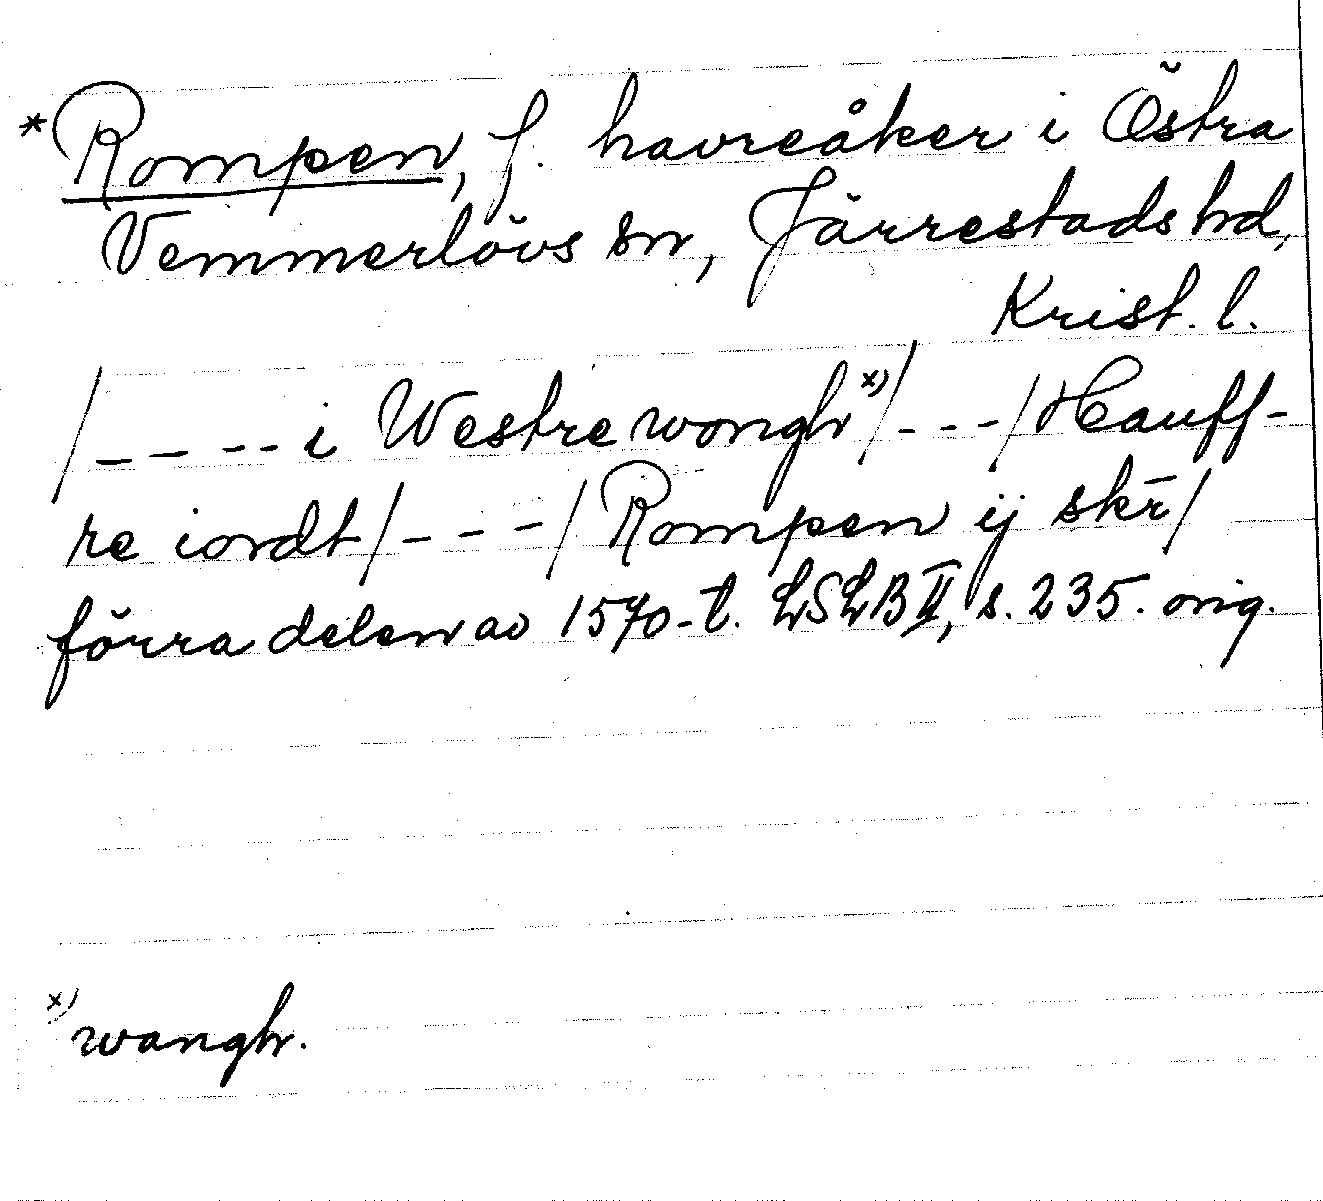 *Rompen, f. havreåker i Östra
Vemmerlövs sn, Järrestads hd,
Krist. l.
/---- i Westre wongh x)/---/Hauff-
re iordt/---/Rompen ij skr̄/
förra delen av 1570-t. LSLB II, s. 235. orig.
x) wangh.